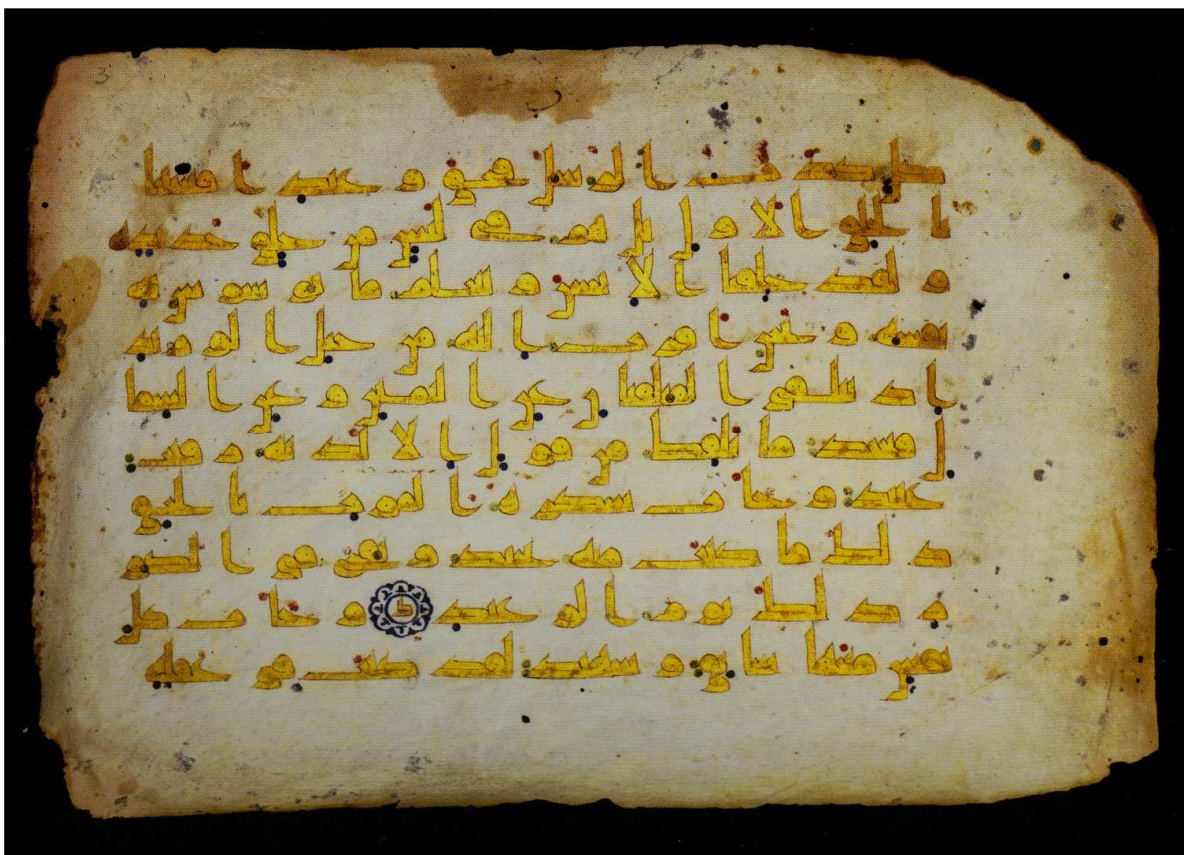 3
كل كذب الرسل فحق وعيد افعيينا
بالخلق الاول بل هم في لبس من خلق جديد
ولقد خلقنا الانسن ونعلم ما توسوس به
نفسه ونحن اقرب اليه من حبل الوريد
اذ يتلقى المتلقين عن اليمين وعن الشما
ل قعيد ما يلفظ من قول الا لديه رقيب
عتيد وجات سكرة الموت بالحق
ذلك ما كنت منه تحيد ونفخ في الصو
ر ذلك يوم الوعيد وجات كل
نفس معها سايق وشهيد لقد كنت في غفلة